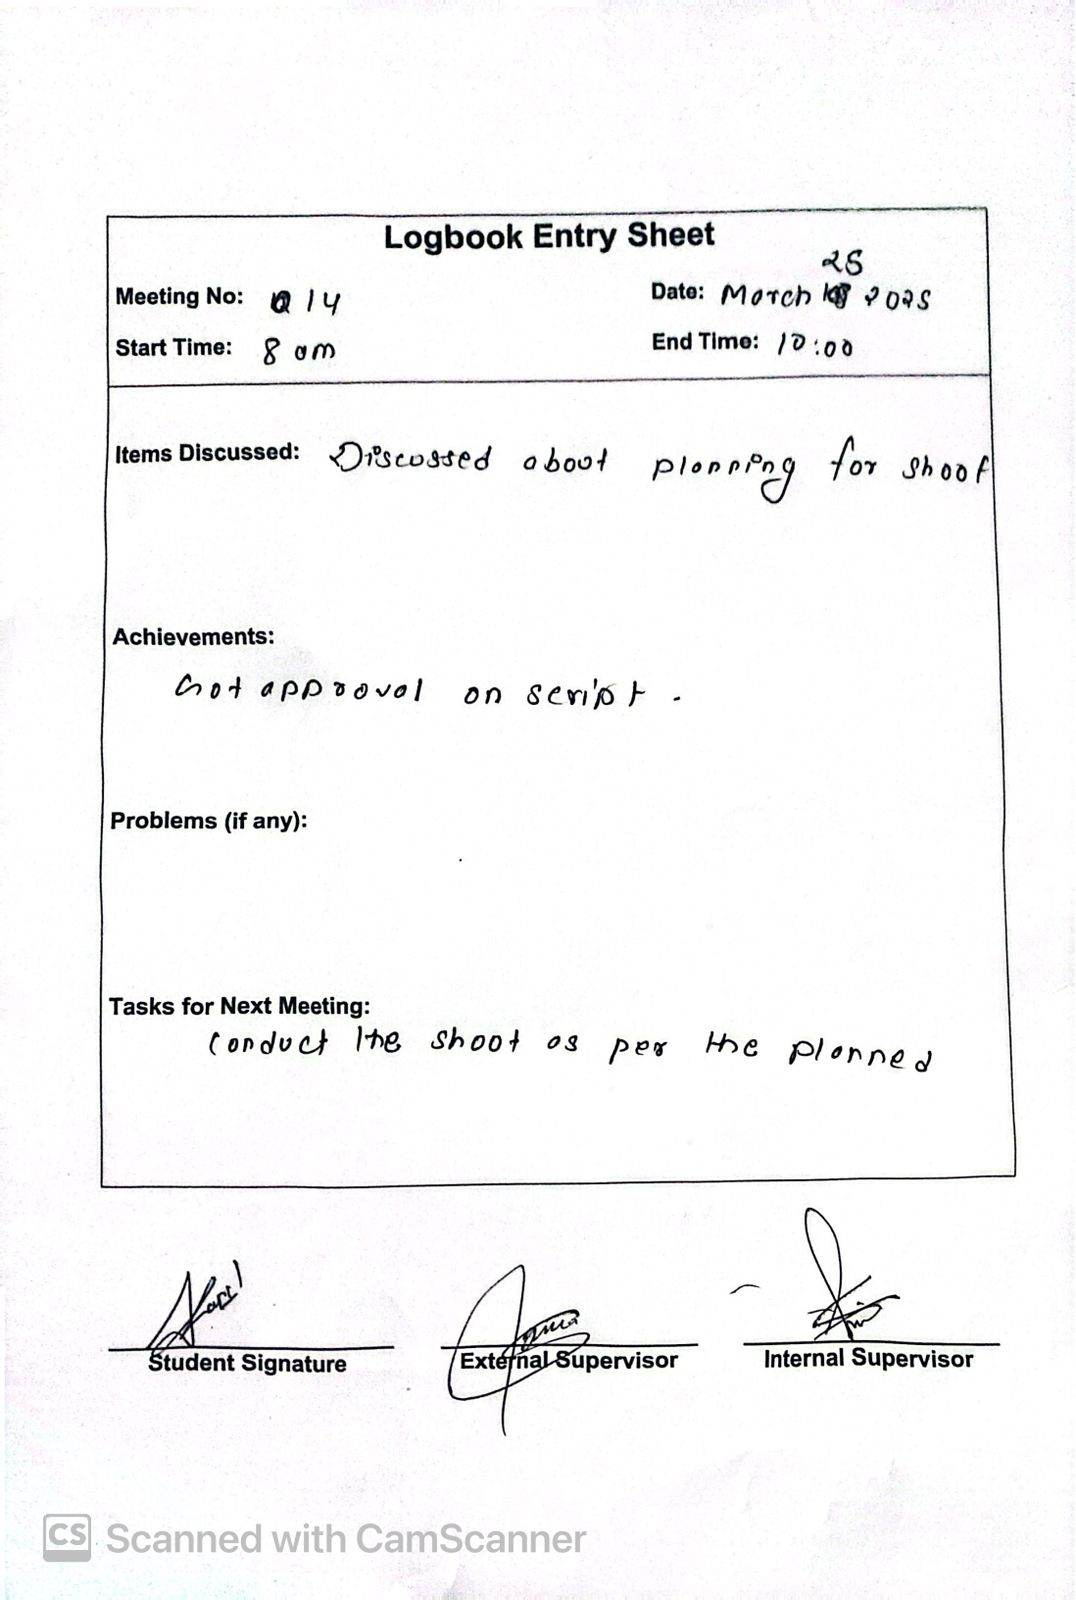 Logbook Entry Sheet
25
Meeting No: 14 Date: March 2025
Start Time: 8 am End Time: 10:00
Items Discussed: Discussed about planning for shoot
Achievements:
Got approval on script .
Problems (if any):
Tasks for Next Meeting:
Conduct the shoot as per the planned
Student Signature External Supervisor Internal Supervisor
CS Scanned with CamScanner